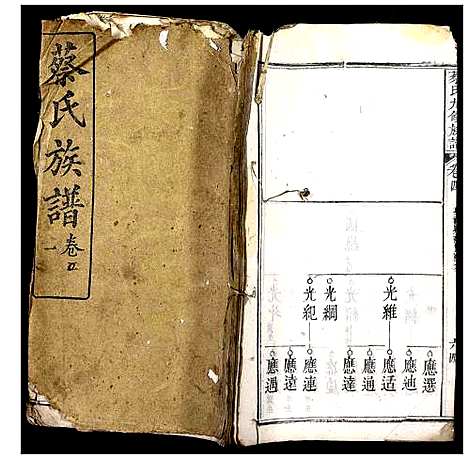 蔡氏族譜
卷五
一
氏九修族譜 卷四
六四
光維
光綱
光紀
應選
應迪
應适
應通
應達
應連
應遠
應遇